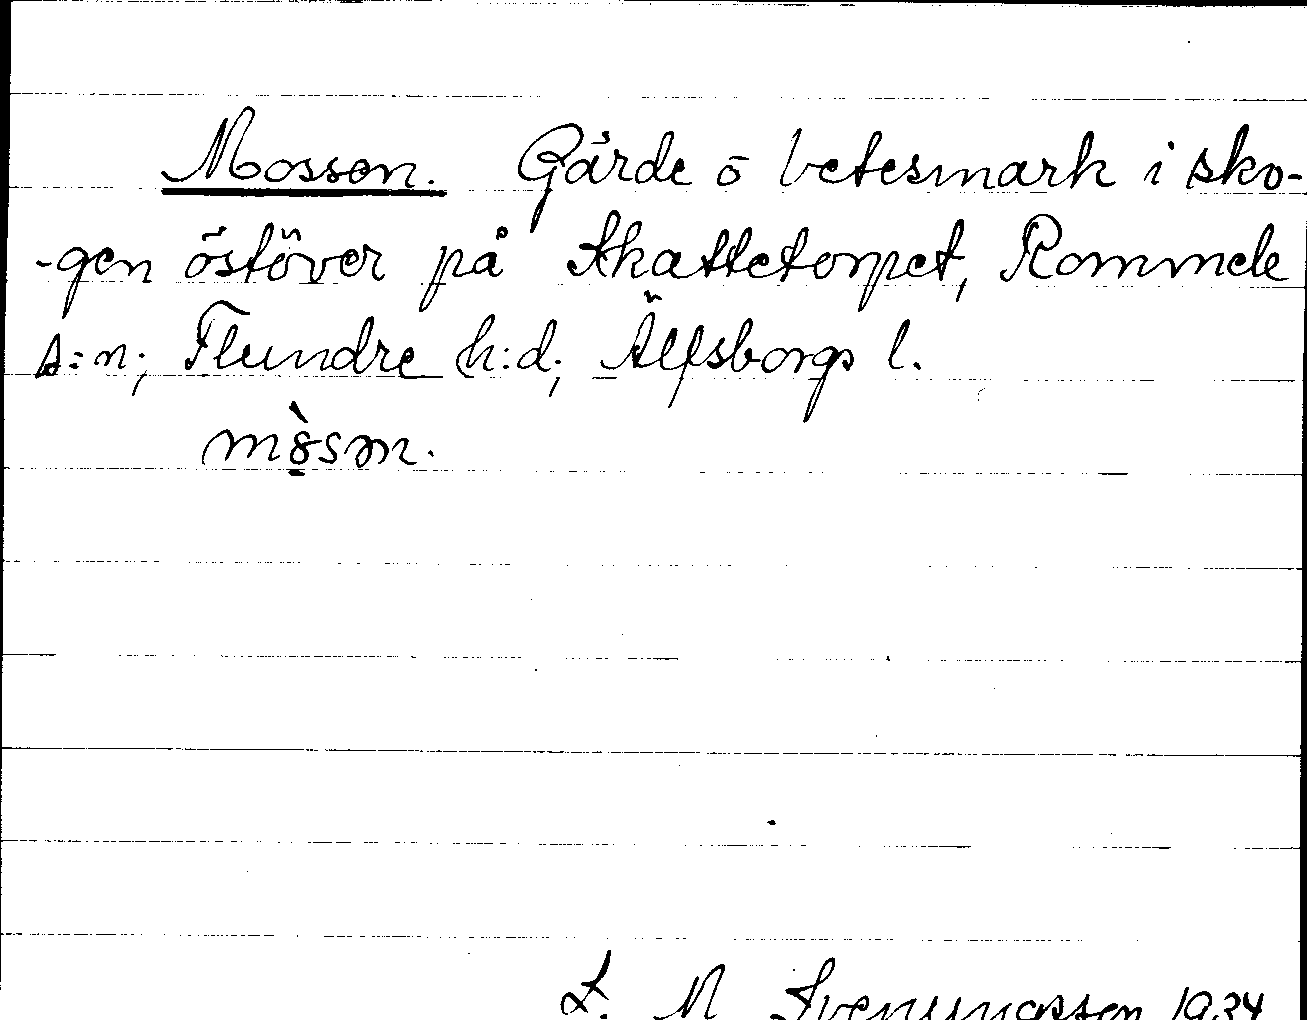 Mossen. Gärde o betesmark i sko-
-gen östöver på Skattetorpet, Rommele
s:n; Flundre h:d; Älfsborgs l.
mòsən.
L. M. 1934